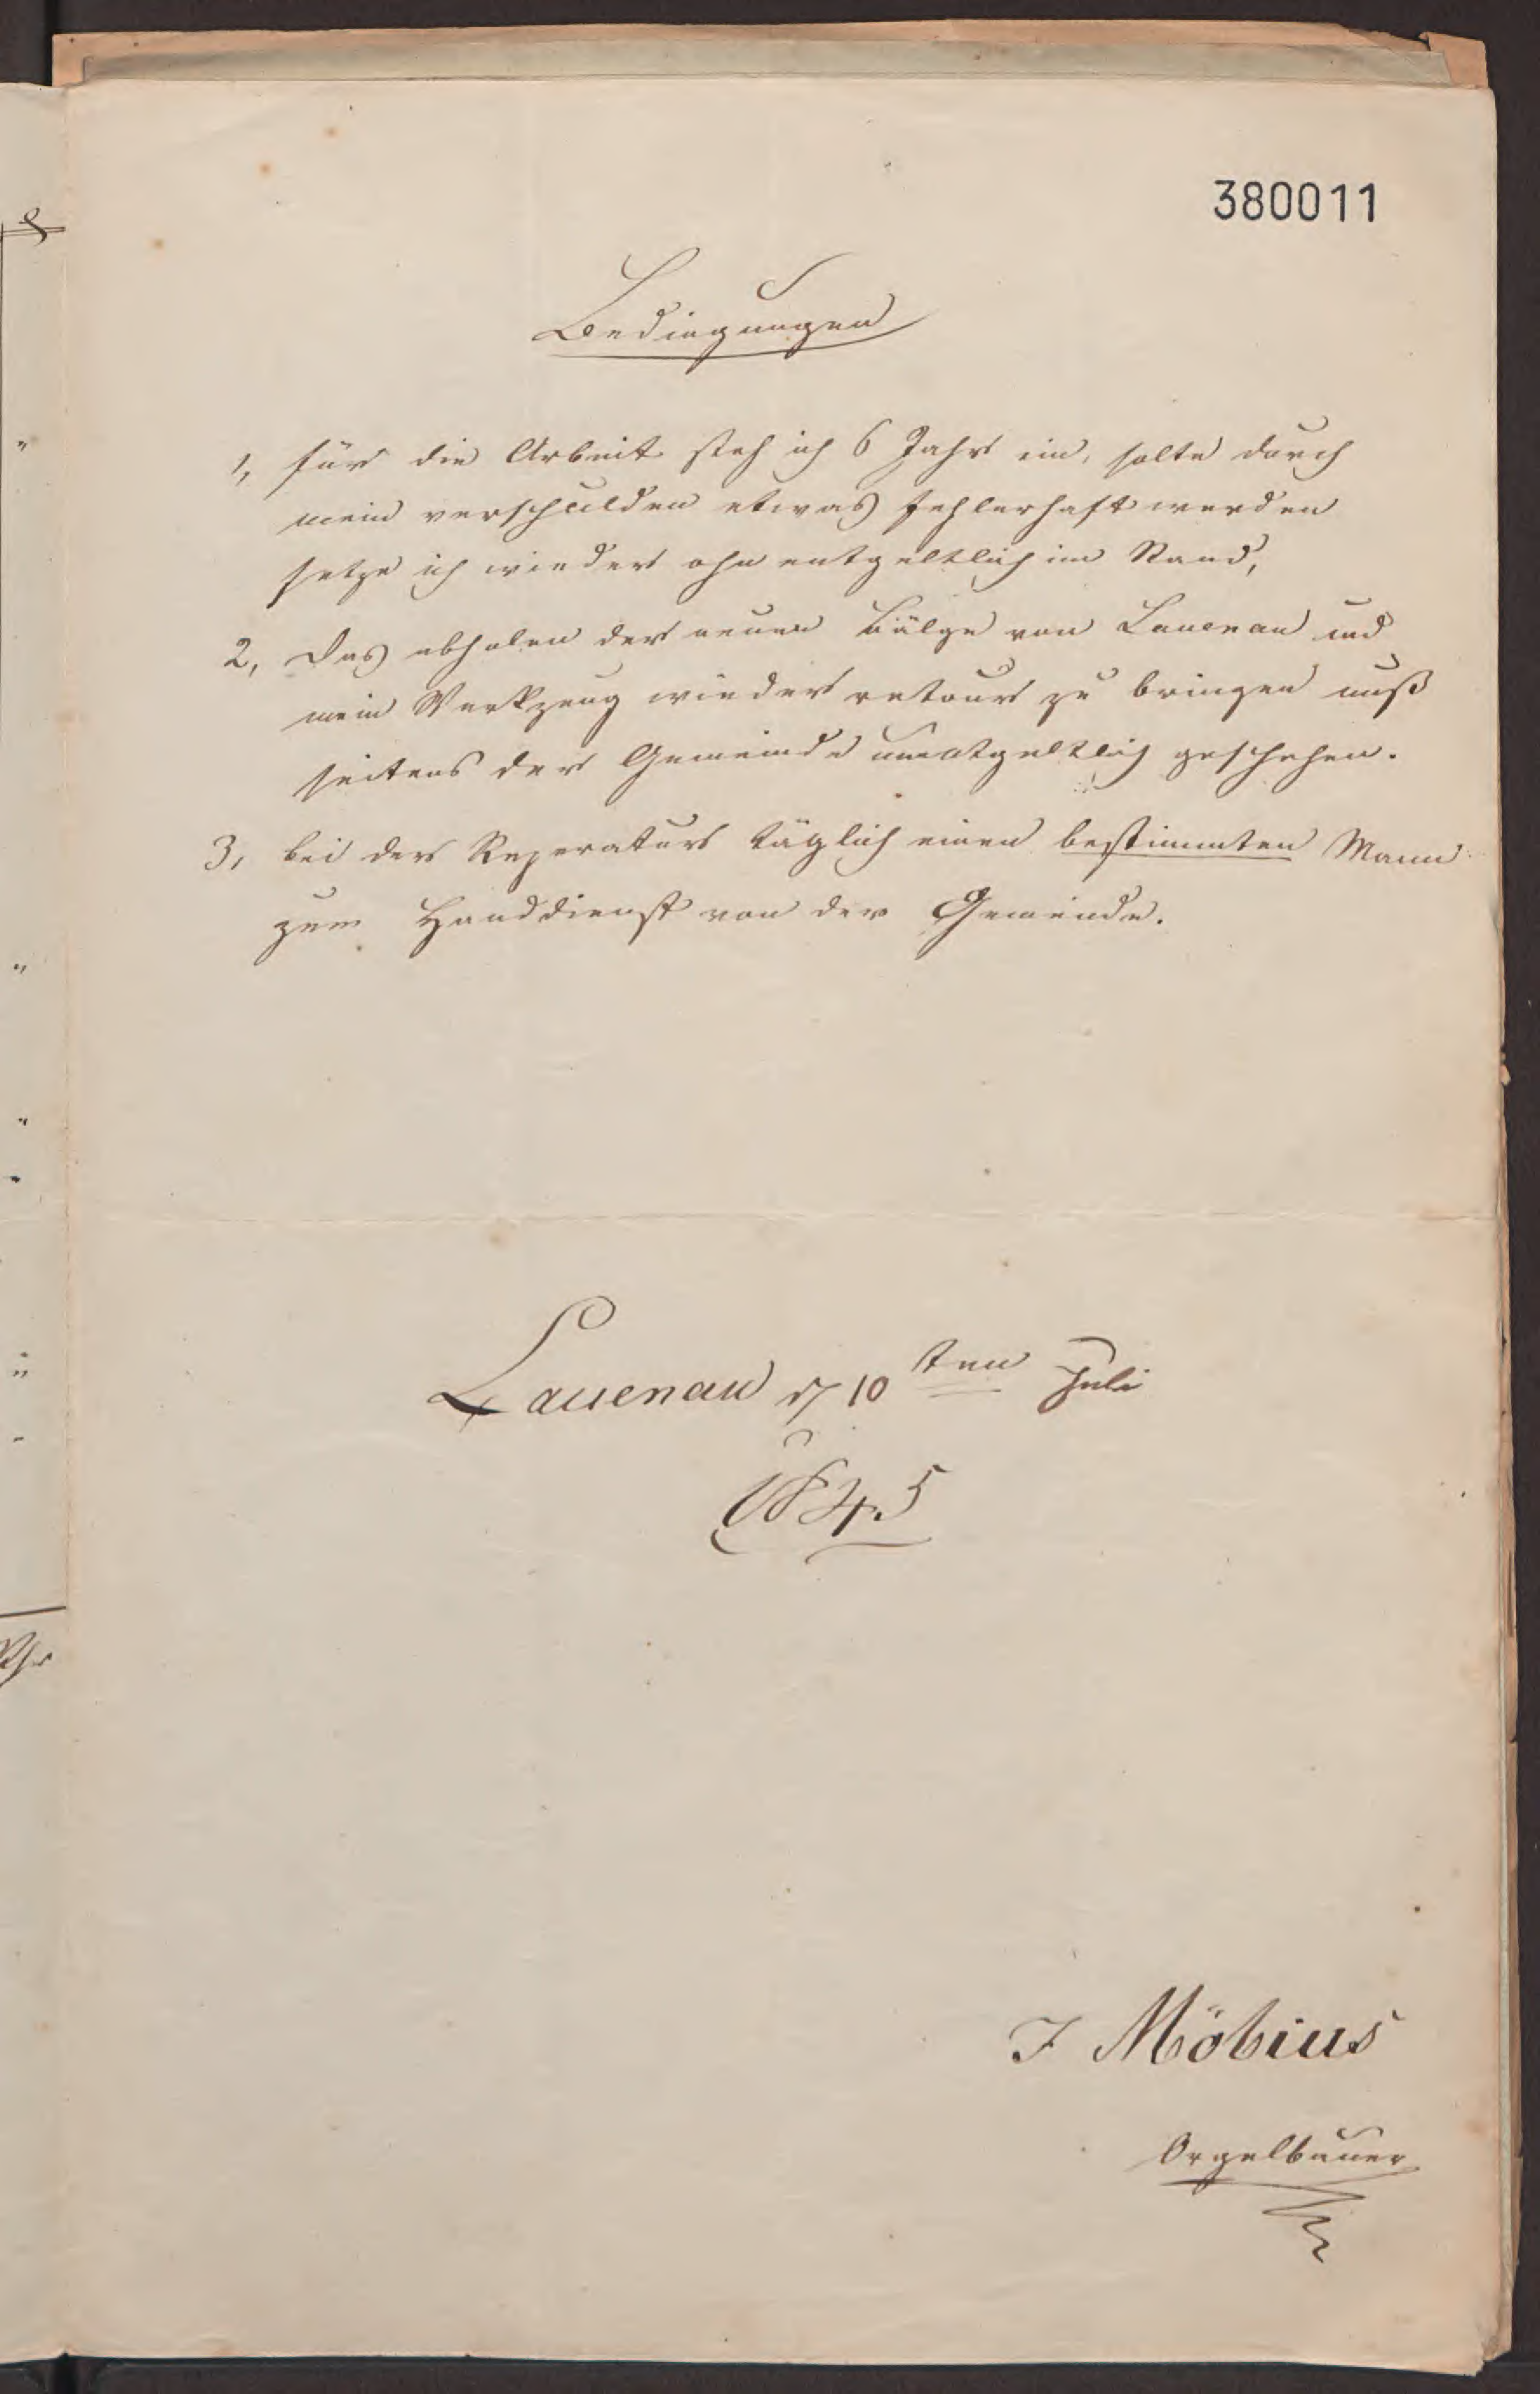 380011
Bedingungen
1, für die Arbeit steh ich 6 Jahr ein, solte durch
mein verschulden etwas fehlerhaft werden
setze ich wieder ohn entgeltlich im Stand,
2, Das abholen der neuen Bälge von Lauenau und
mein Werkzeug wieder retour zu bringen muß
seitens der Gemeinde unentgeltlich geschehen.
3, bei der Reperatur täglich einen bestimmten Mann
zum Handdienst von der Gemeinde.
Lauenau d 10ten Juli
1845
F Möbius
Orgelbauer